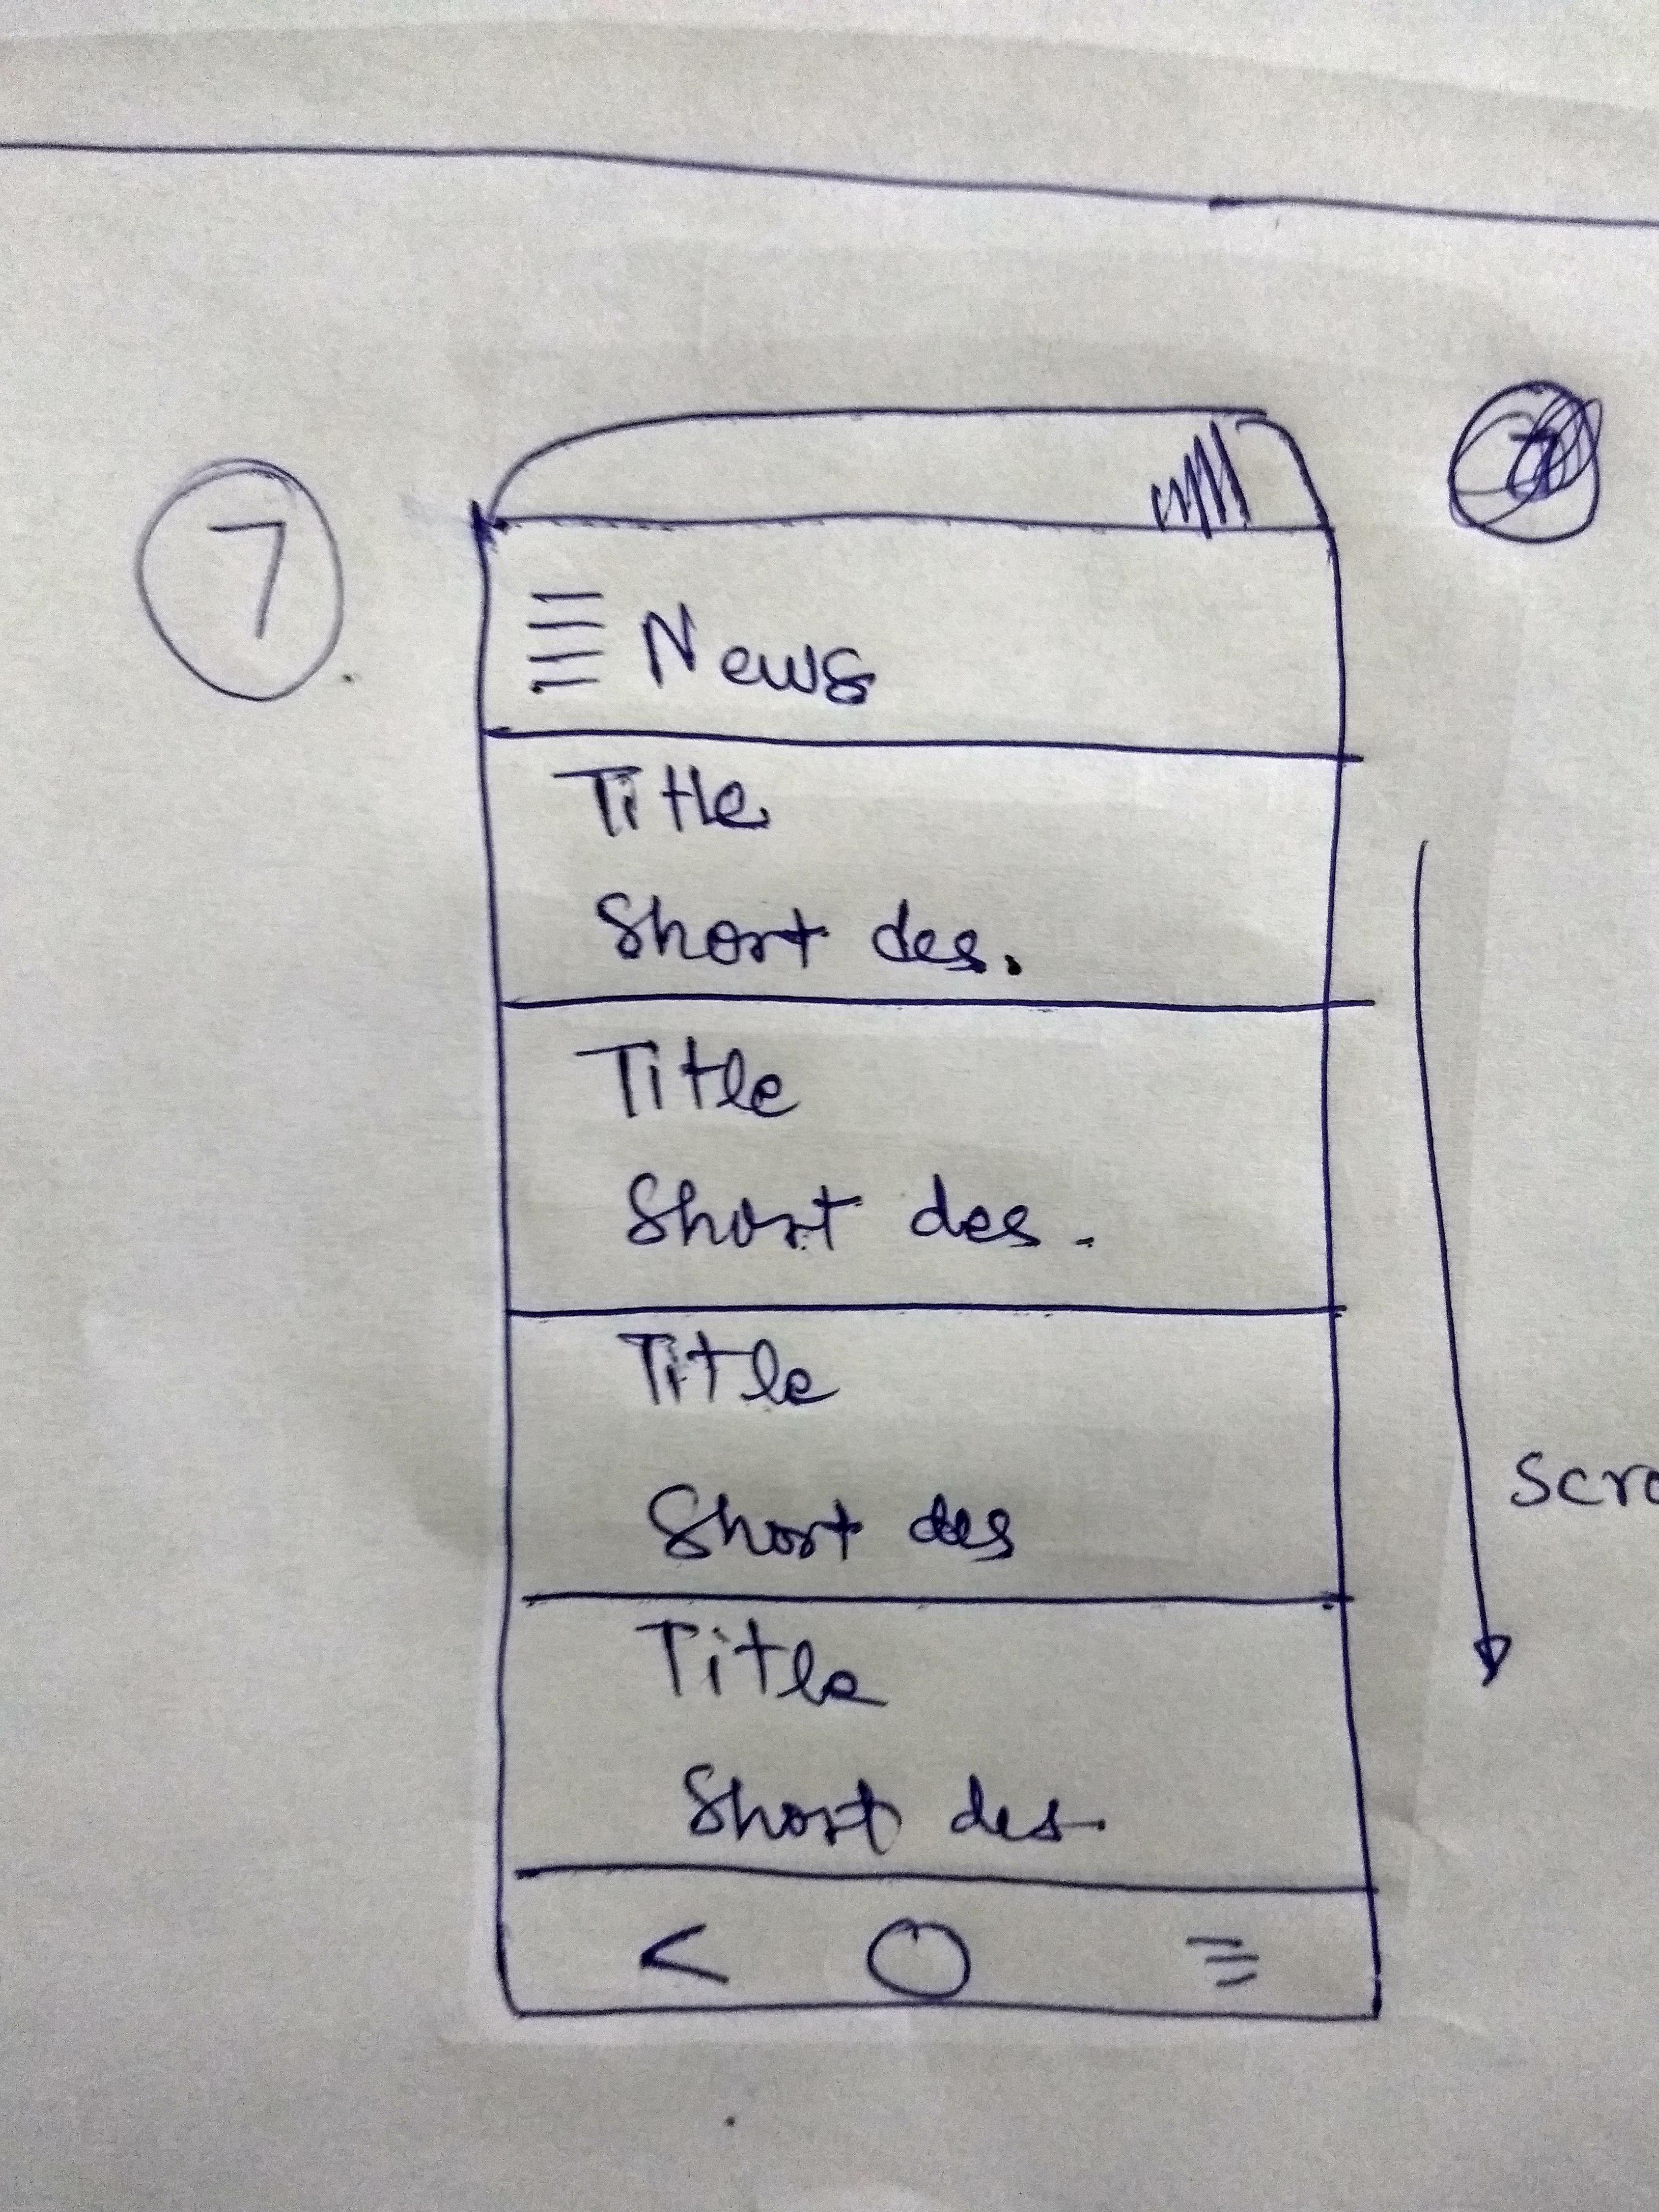 7
News
Title
Short des.
Title
Short des.
Title
Short des
Scro
Title
Short des.